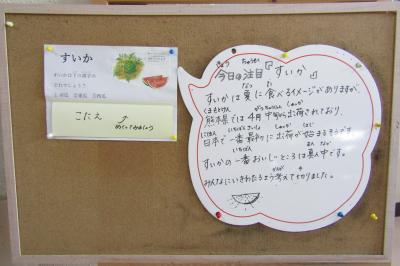 すいか
すいかは下の漢字の
どれでしょう？
こたえ
めくってみましょう
今日の注目『すいか』
すいかは夏に食べるイメージがありますが、
熊本県では4月中旬から出荷されており、
日本で一番最初に出荷が始まるそうです。
すいかの一番おいしいところは真ん中です。
みんなにいきわたるよう考えて切りました。